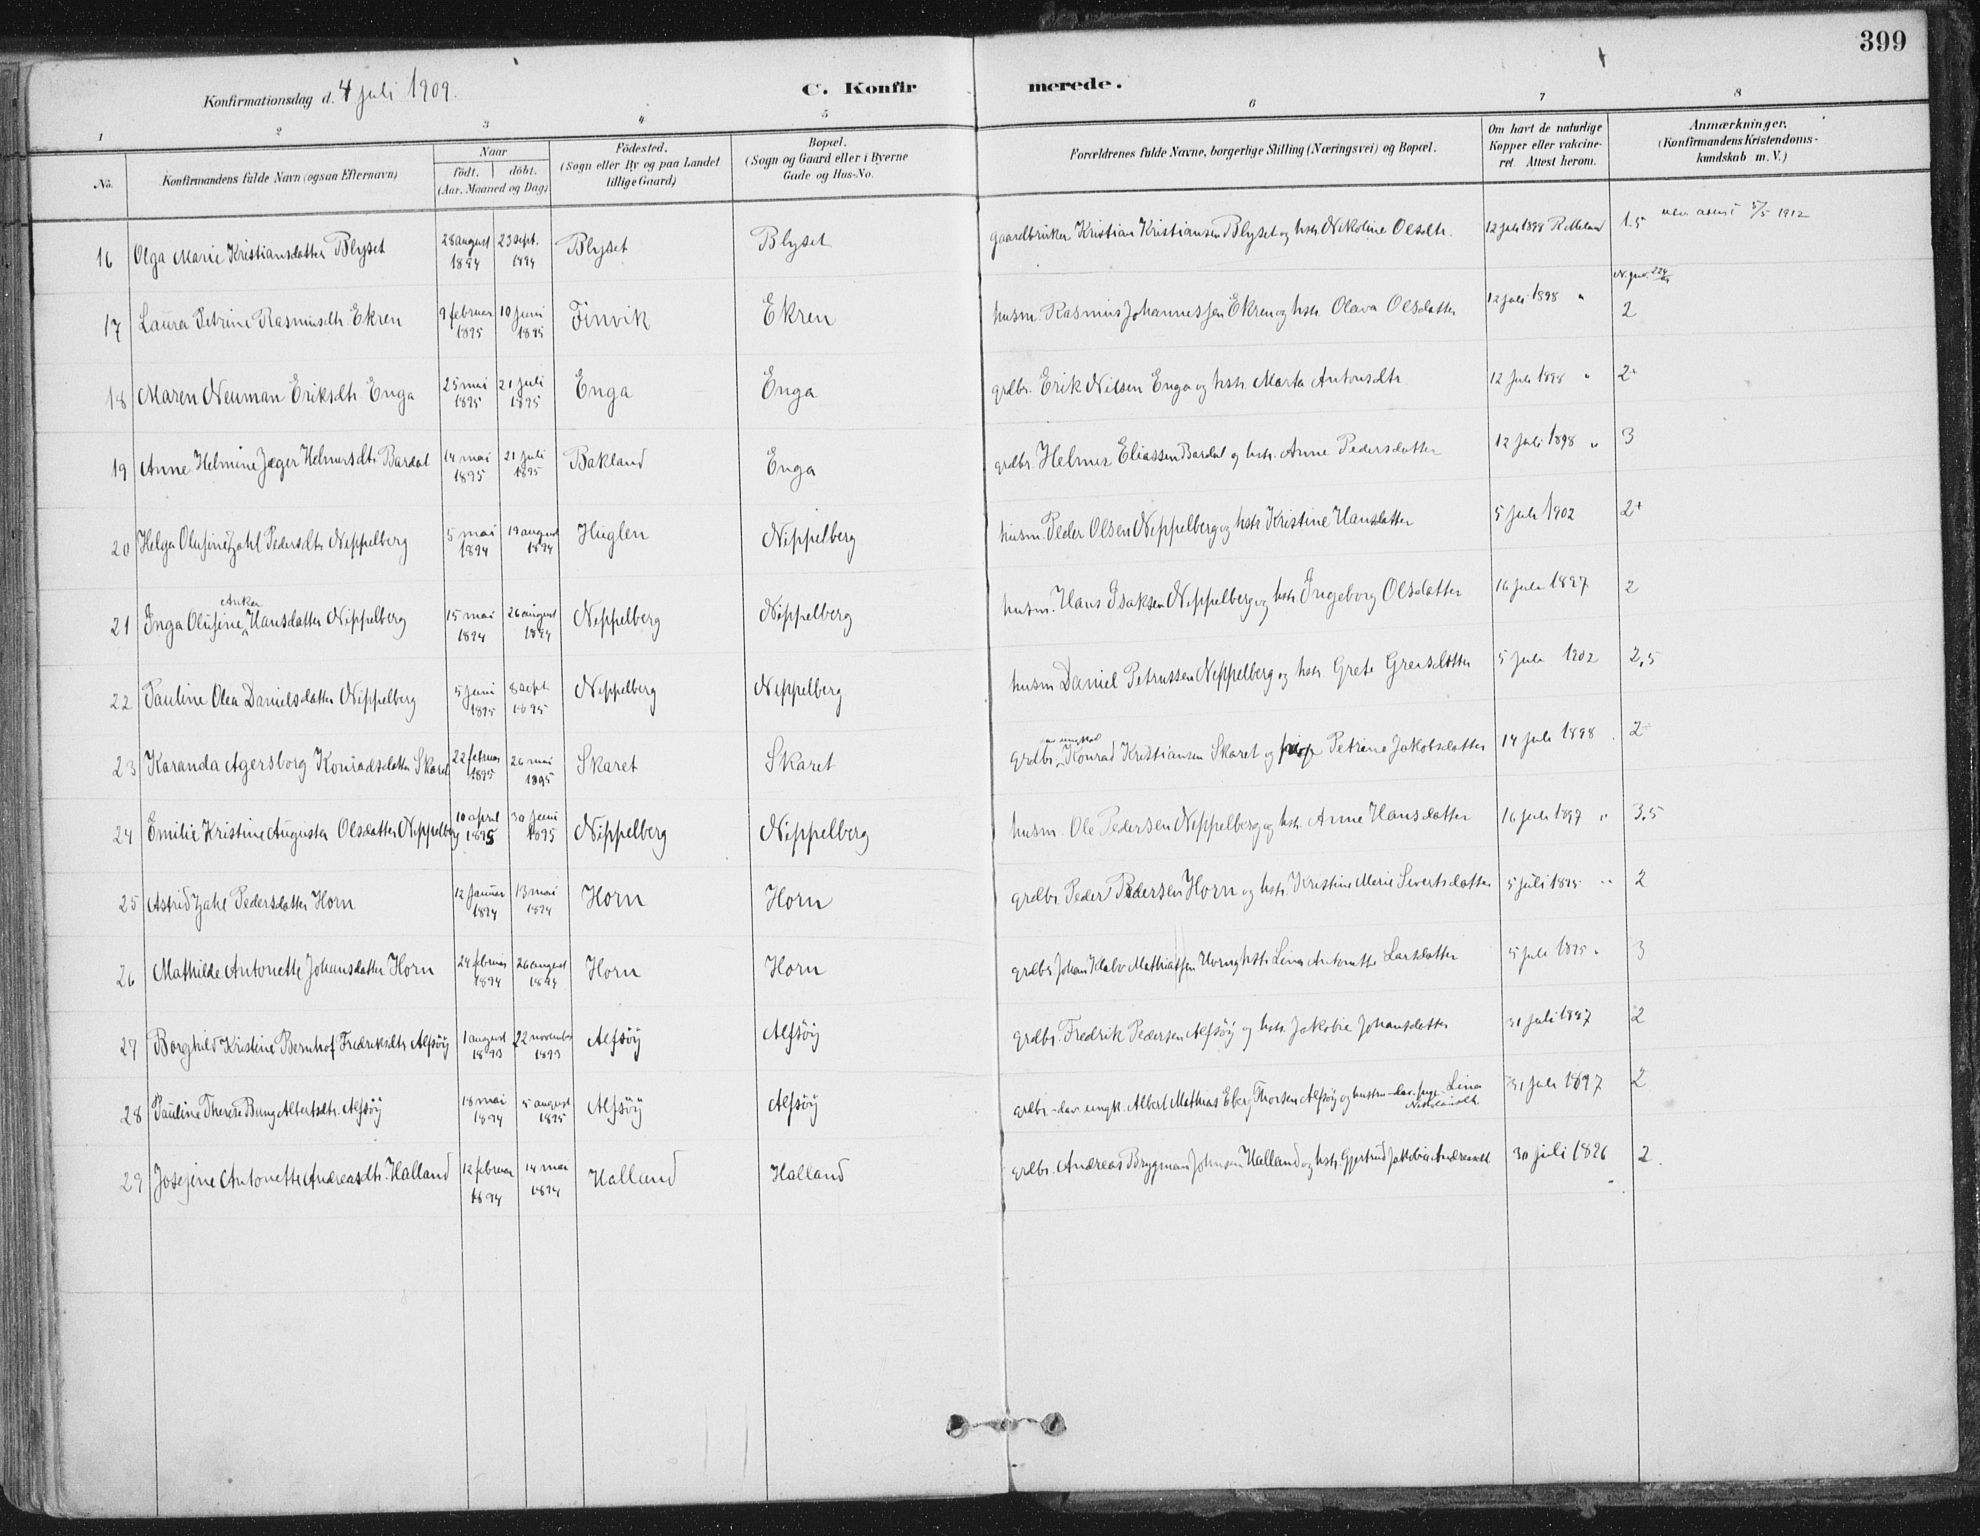 399
Konfirmationsdag d. 4 juli 1909.
C. Konfirmerede.
1 2 3 4 5 6 7 8
No.
Konfirmandens fulde Navn (ogsaa Efternavn)
Naar födt. döbt. (Aar. Maaned og Dag)
Födested. (Sogn eller By og paa Landet tillige Gaard)
Bopæl. (Sogn og Gaard eller i Byerne Gade og Hus-No.
Forældrenes fulde Navne, borgerlige Stilling (Næringsvei) og Bopæl.
Om havt de naturlige Kopper eller vakcineret Attest herom.
Anmærkninger. (Konfirmandens Kristendomskundskab m. V.)
16 Olga Marie Kristiansdatter Blyset 28 august 1894 23 sept. 1894 Blyset Blyset gaardbruker Kristian Kristiansen Blyset og hstr Nikoline Olsdtr. 12 juli 1898 1.5 5/5 1912
17 Laura Petrine Rasmusdtr. Ekren 9 februar 1895 10 juni 1895 Finvik Ekren husm. Rasmus Johannessen Ekren og hstr. Olava Olsdatter 12 juli 1898 " 2
18 Maren Neuman Eriksdtr. Enga 25 mai 1895 21 juli 1895 Enga Enga grdbr. Erik Nilsen Enga og hstr Marta Antonsdtr 12 juli 1898 " 2+
19 Anne Helmine Jæger Helmersdtr Bardal 14 mai 1895 21 juli 1895 Bakland Enga grdbr. Helmer Eliassen Bardal og hstr. Anne Pedersdatter 12 juli 1898 " 3
20 Helga Olufine Zahl Pedersdtr Nippelberg 5 mai 1894 19 august 1894 Huglen Nippelberg husm. Peder Olsen Nippelberg og hstr Kristine Hansdatter 5 juli 1902 2+
21 Inga Olufine Anker Hansdatter Nippelberg 15 mai 1894 26 august 1894 Nippelberg Nippelberg husm. Hans Isaksen Nippelberg og hstr Ingeborg Olsdatter 16 juli 1897 2
22 Pauline Olea Danielsdatter Nippelberg 5 juni 1895 8 sept 1895 Nippelberg Nippelberg husm Daniel Petrussen Nippelberg og hstr Grete Greisdatter 5 juli 1902 2,5
23 Karanda Agersborg Konradsdatter Skaret 22 februar 1895 26 mai 1895 Skaret Skaret grdbr. Konrad Kristiansen Skaret og Petrine Jakobsdatter 14 juli 1898 2
24 Emilie Kristine Augusta Olsdatter Nippelberg 10 april 1895 30 juni 1895 Nippelberg Nippelberg husm. Ole Pedersen Nippelberg og hstr. Anne Hansdatter 16 juli 1897 " 3.5
25 Astrid Zahl Pedersdatter Horn 12 januar 1894 13 mai 1894 Horn Horn grdbr. Peder Pedersen Horn og hstr. Kristine Marie Sivertsdatter 5 juli 1895 " 2
26 Mathilde Antonette Johansdatter Horn 24 februar 1894 26 august 1894 Horn Horn grdbr Johan Klabo Mathiassen Horn og hstr Lina Antonette Larsdatter 5 juli 1895 " 3
27 Borghild Kristine Bernhof Fredriksdtr Alfsöy 1 august 1893 22 november 1893 Alfsöy Alfsöy grdbr. Fredrik Pedersen Alfsöy og hstr. Jakobie Johansdatter 31 juli 1897 2
28 Pauline Therese Albertsdtr. Alfsöy 18 mai 1894 5 august 1895 Alfsöy Alfsöy grdbr - dav. ungk. Albert Mathias Thorsen Alfsöy og hustru - dav. pige Lina 31 juli 1897 2
29 Josefine Antonette Andreasdtr. Halland 12 februar 1894 14 mai 1894 Halland Halland grdbr. Andreas Brygman Johnsen Halland og hstr. Gjertrud Jakobie Andreasdt 30 juli 1896 2.